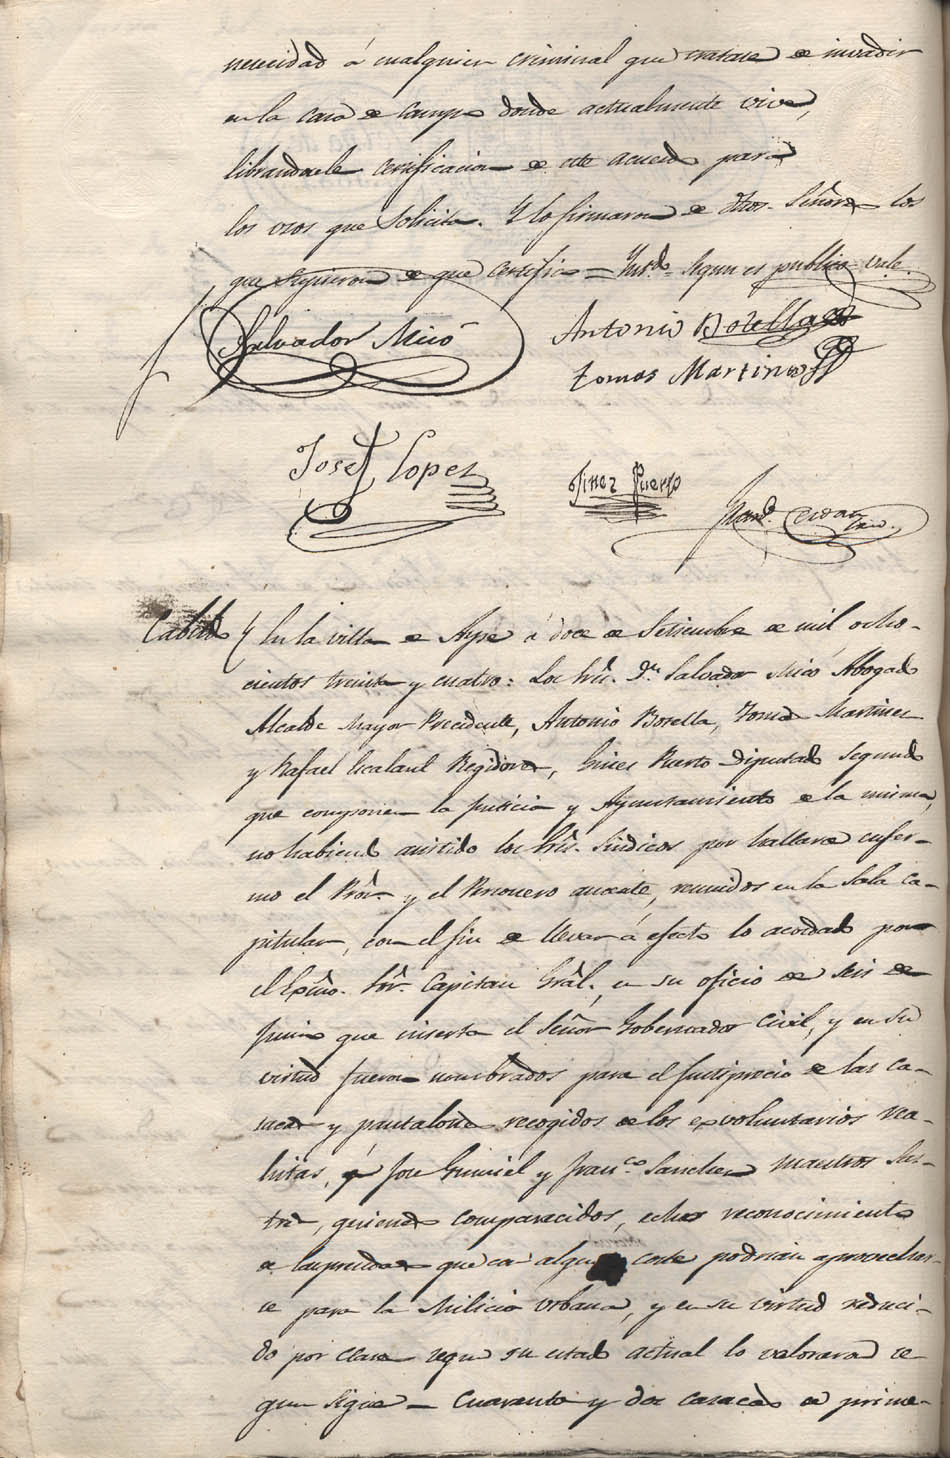 necesidad á cualquier criminal que tratase de invadir
en la casa de campo donde actualmente vive,
librandosele certificacion de este acuerdo para
los usos que solicita. Y lo firmaron de dhos. Señores los
que supieron de que certifico = segun es publico vale.
Salvador Micó
Antonio Botella
tomas Martines
Josef Lopez
Jines Puerto
Cabildo
En la villa de Aspe á doce de Setiembre de mil ocho-
cientos treinta y cuatro: Los Srs. Dn. Salvador Micó Abogado
Alcalde Mayor Precidente, Antonio Botella, Tomas Martines
y Rafael Escalant Regidores, Gines Puerto Diputado Segundo
que componen la Justicia y Ayuntamiento de la misma,
no habiendo asistido los Srs. Sindicos por hallarse enfer-
mo el Pror. y el Personero ausente, reunidos en la Sala Ca-
pitular, con el fin de llevar á efecto lo acordado por
el Exmo. Sor. Capitan Gral., en su oficio de seis de
Junio que inserta el Señor Gobernador Civil, y en su
virtud fueron nombrados para el justiprecio de las ca-
sacas y pantalones recogidos de los exvoluntarios rea-
listas, José Gumiel y Franco. Sanchez Maestros Sas-
tres, quienes comparecidos, echos reconocimiento
de las prendas que con algun coste podrian aprovechar-
se para la Milicia Urbana, y en su virtud reduci-
do por clases segun su estado actual lo valoraron se
gun sigue = Cuarenta y dos casacas de prime-